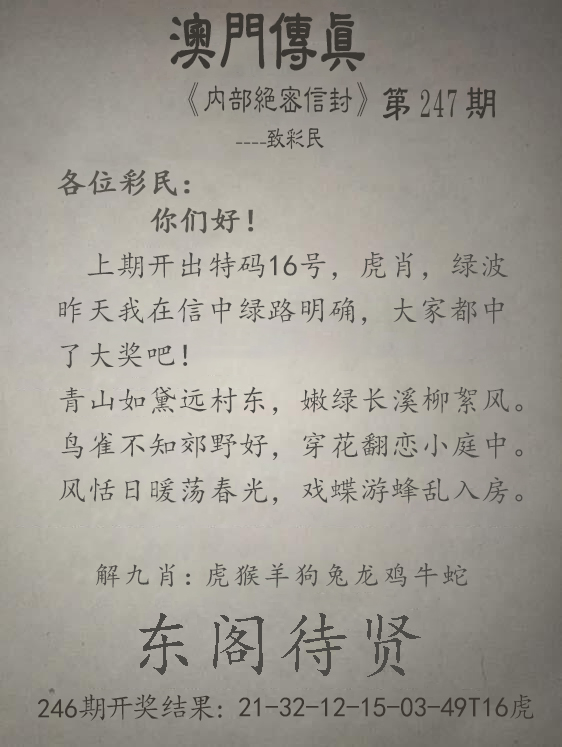 澳門傳眞
《内部絕密信封》第247期
----致彩民
各位彩民：
你们好！
上期开出特码16号，虎肖，绿波
昨天我在信中绿路明确，大家都中
了大奖吧！
青山如黛远村东，嫩绿长溪柳絮风。
鸟雀不知郊野好，穿花翻恋小庭中。
风恬日暖荡春光，戏蝶游蜂乱入房。
解九肖：虎猴羊狗兔龙鸡牛蛇
东阁待贤
246期开奖结果：21-32-12-15-03-49T16虎